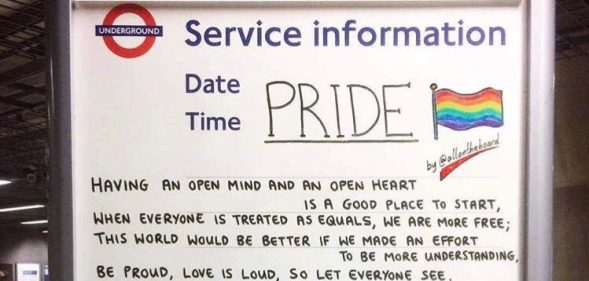 UNDERGROUND
Service information
Date
Time
PRIDE
by @allontheboard
HAVING AN OPEN MIND AND AN OPEN HEART
IS A GOOD PLACE TO START,
WHEN EVERYONE IS TREATED AS EQUALS, WE ARE MORE FREE;
THIS WORLD WOULD BE BETTER IF WE MADE AN EFFORT
TO BE MORE UNDERSTANDING,
BE PROUD, LOVE IS LOUD, SO LET EVERYONE SEE.